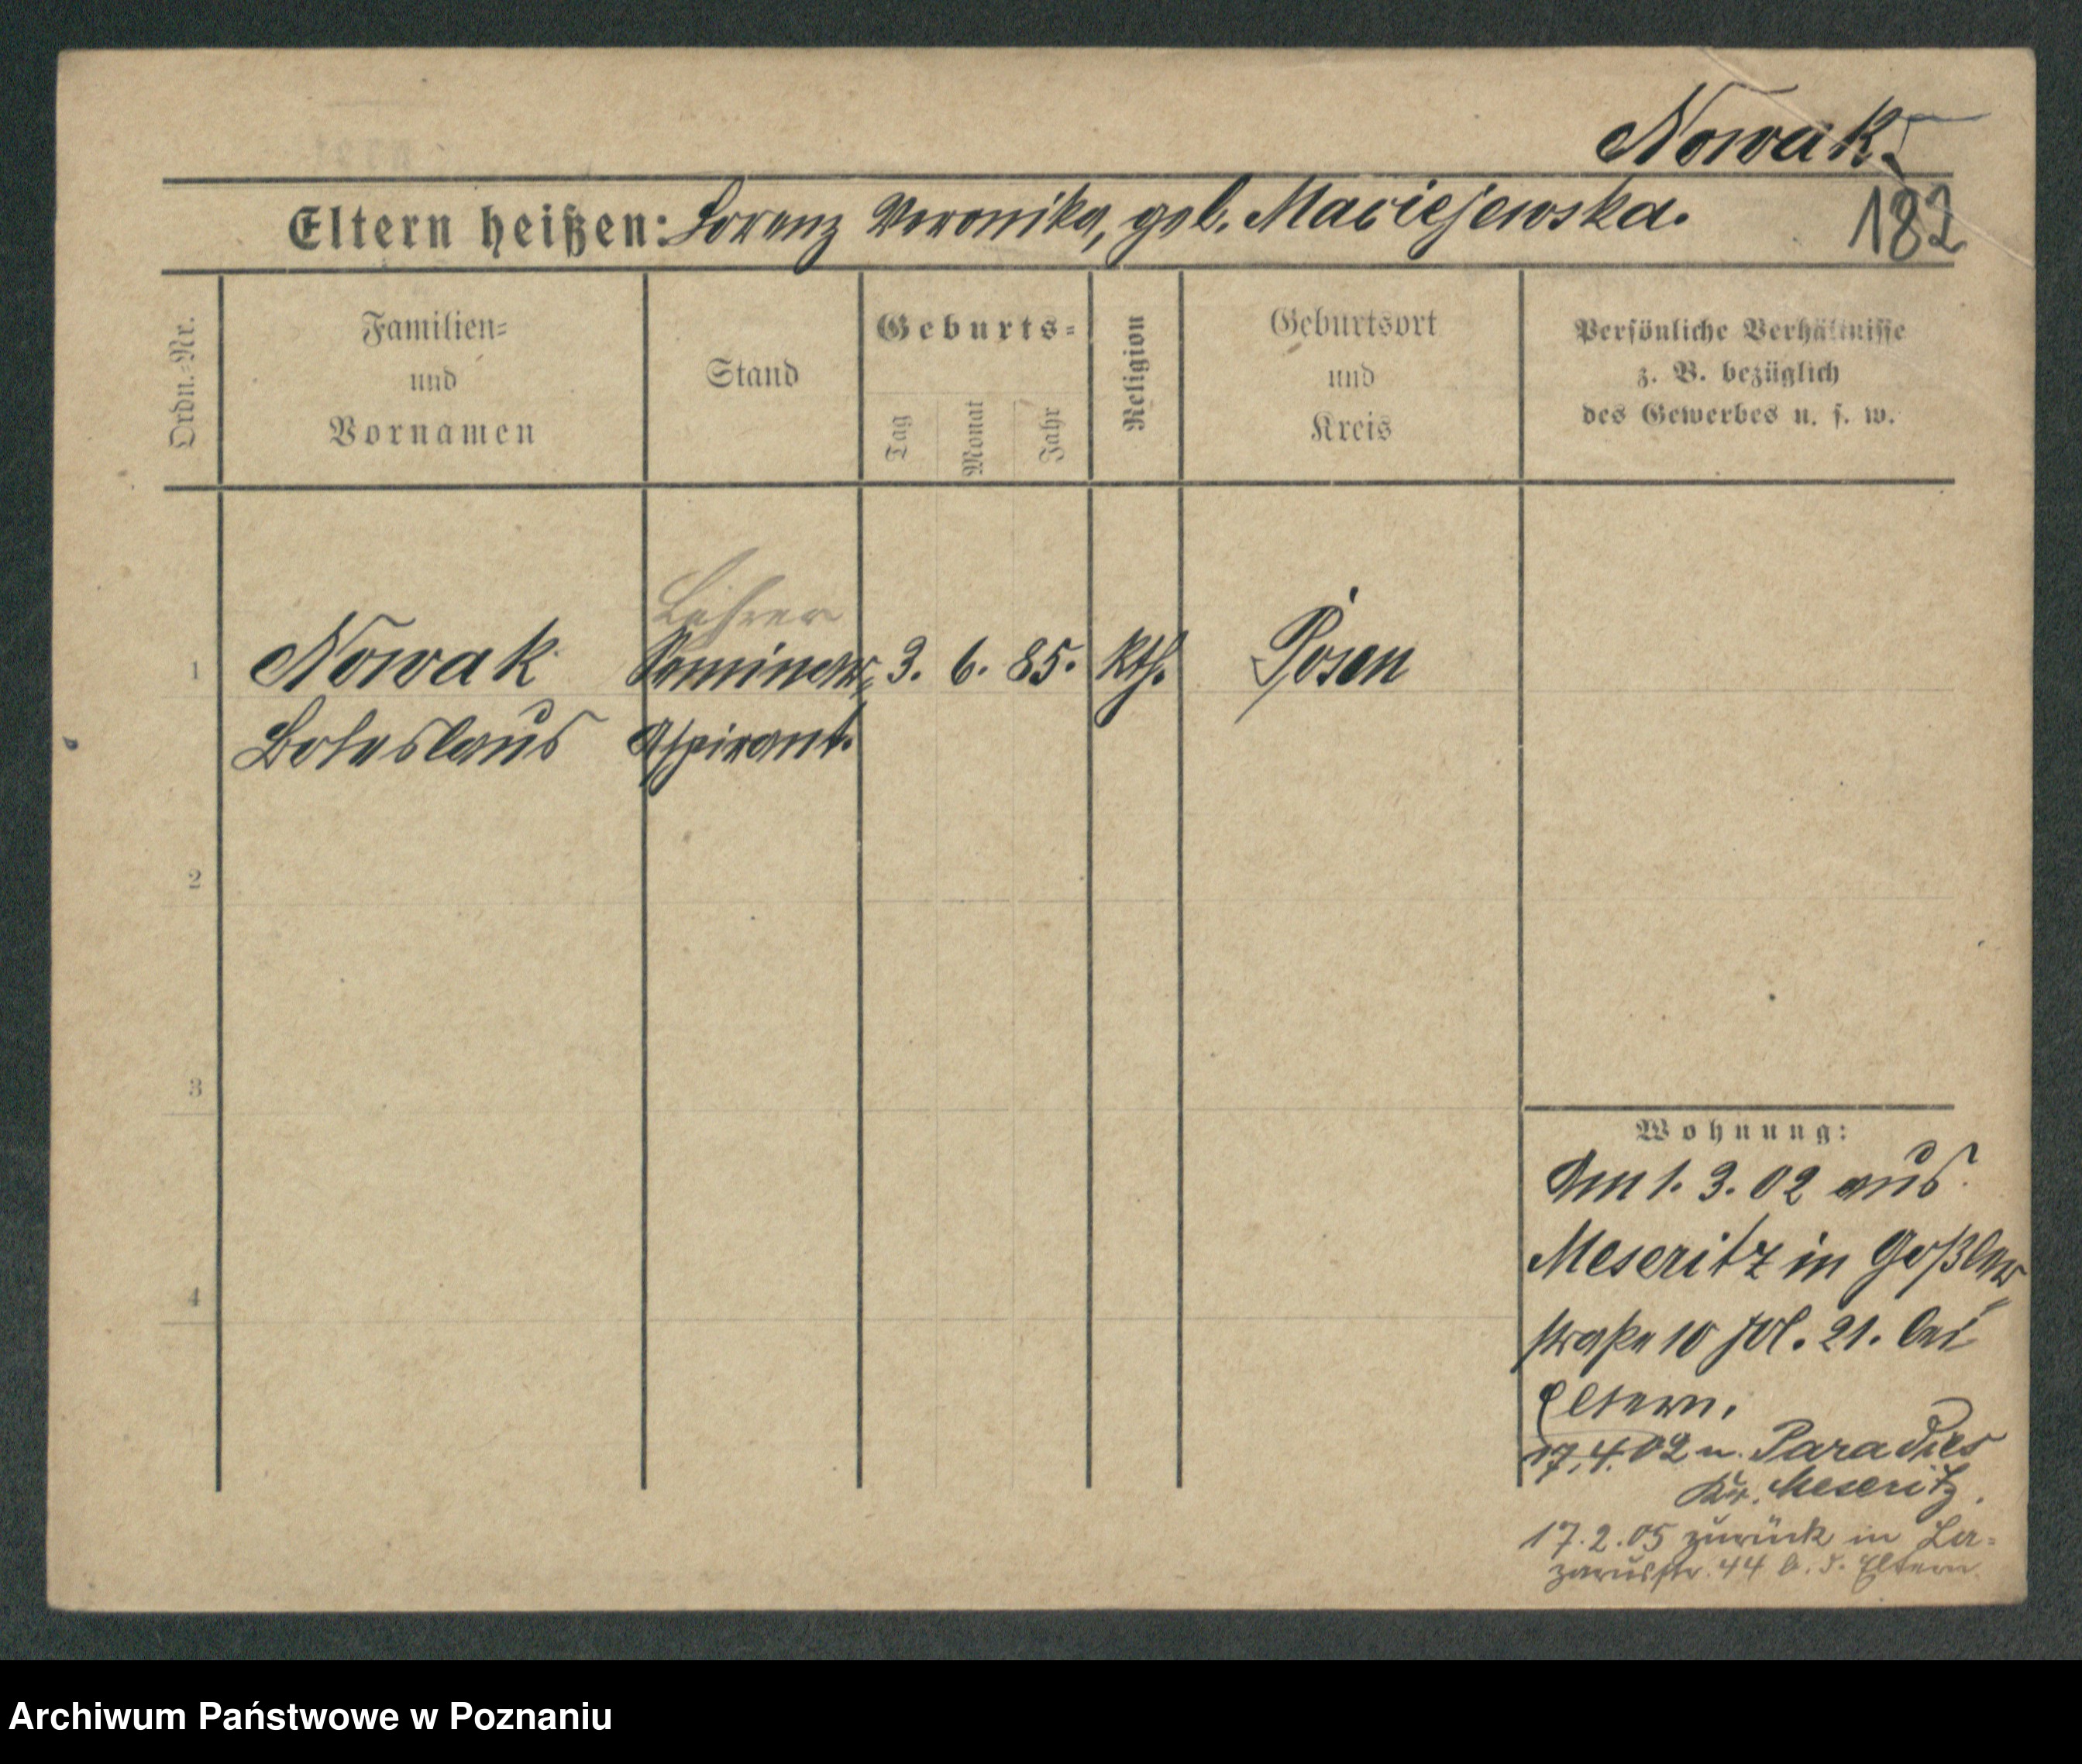 Nowak.
Eltern heißen: Lorenz Veronika, geb. Maciejewska.
182
Ordn.-Nr.
Familien-
und
Vornamen
Stand
Geburts-
Tag
Monat
Jahr
Religion
Geburtsort
und
Kreis
Persönliche Verhältnisse
z. B. bezüglich
des Gewerbes u. s. w.
Lehrer
1 Nowak Seminar- 3. 6. 85. kth. Posen
Boleslaus Aspirant.
2
3
4
Wohnung:
Am 1. 3. 02 aus
Meseritz in Goßler-
straße 10 21. bei
Eltern.
17.4.02 n. Paradies
Kr. Meseritz.
17.2.05 zurück in La-
zarusstr. 44 b. d. Eltern
Archiwum Państwowe w Poznaniu